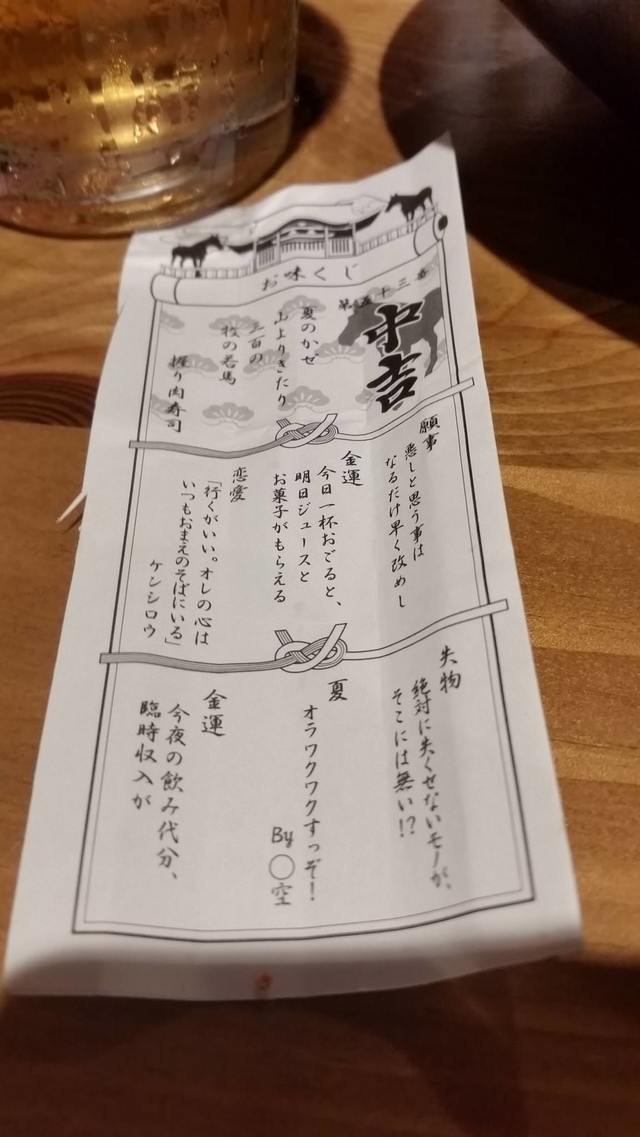 お味くじ
第五十三番
中吉
夏のかぜ
山よりきたり
三百の
牧の若馬
握り肉寿司
願事
悪しと思う事は
なるだけ早く改めし
金運
今日一杯おごると、
明日ジュースと
お菓子がもらえる
恋愛
「行くがいい。オレの心は
いつもおまえのそばにいる」
ケンシロウ
失物
絶対に失くせないモノが、
そこには無い!?
夏
オラワクワクすっぞ!
By ◯空
金運
今夜の飲み代分、
臨時収入が